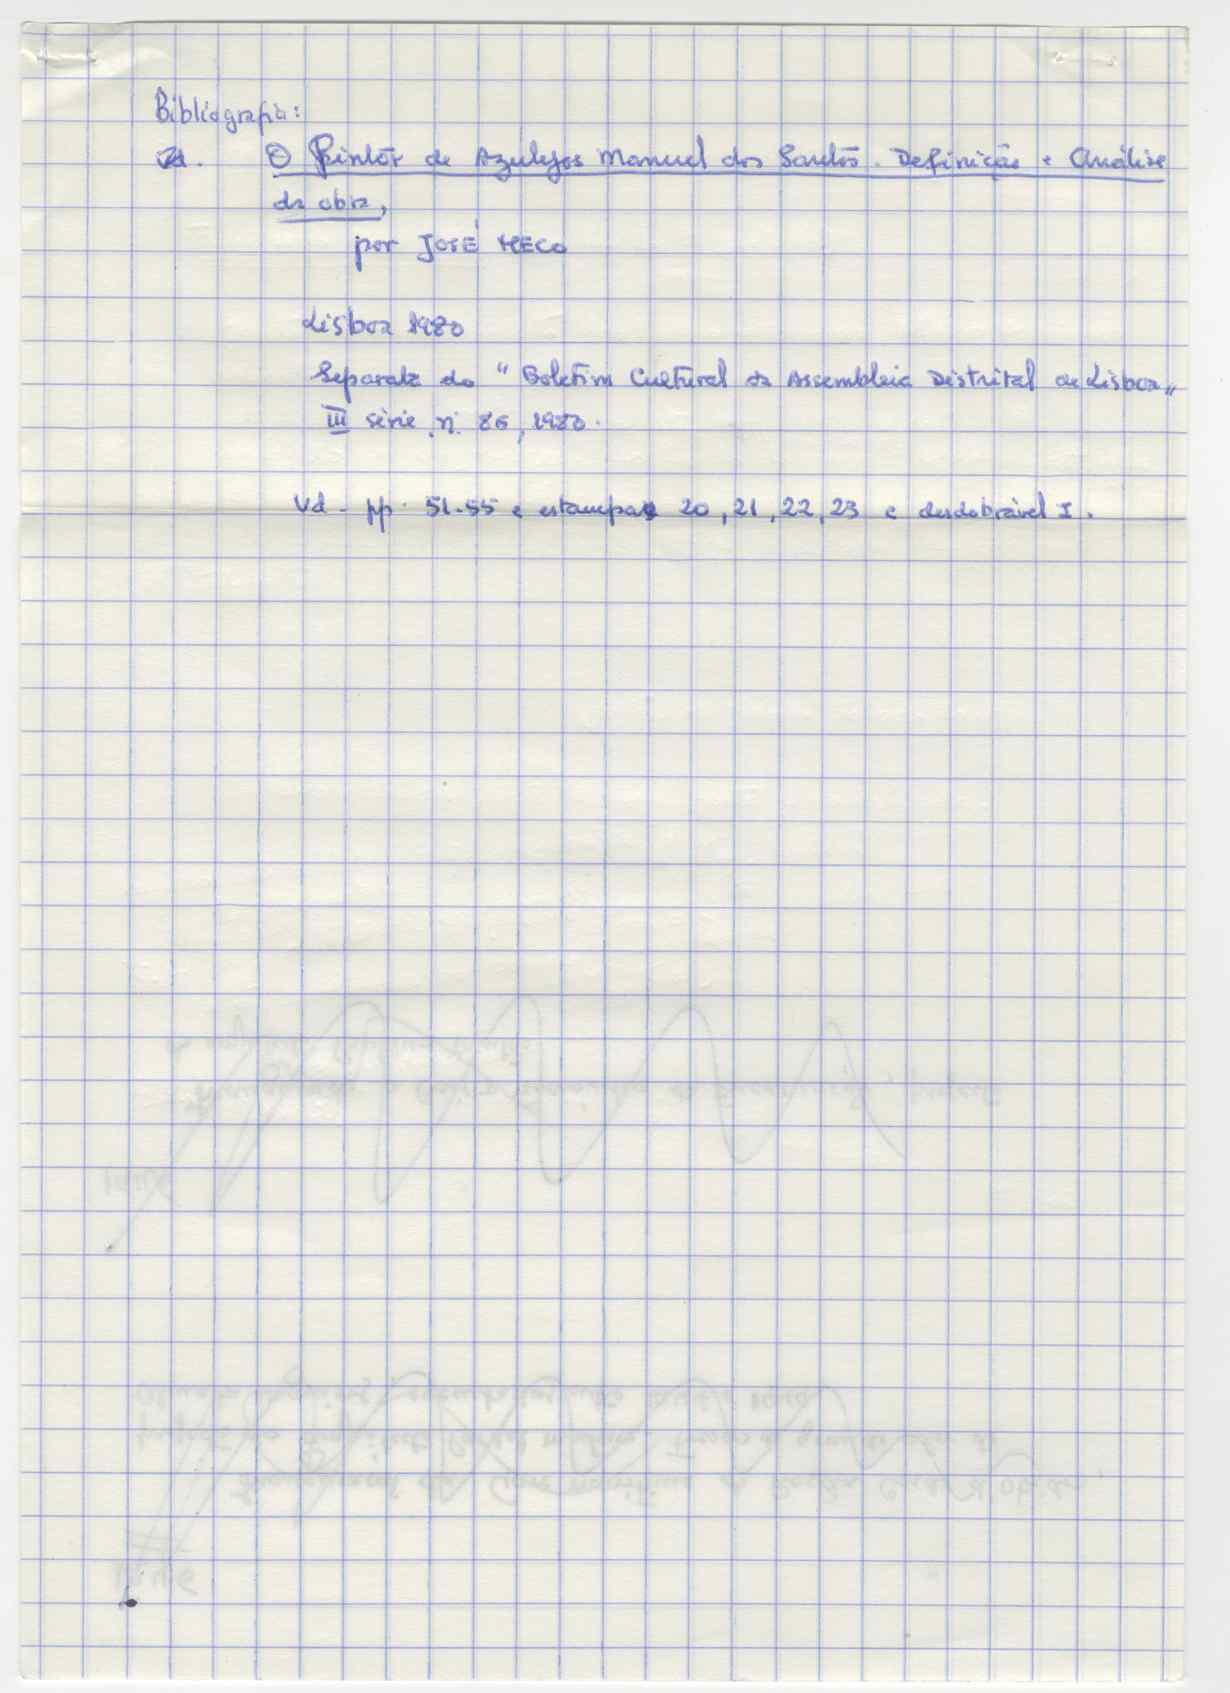 Bibliografia:
O Pintor de Azulejos Manuel dos Santos. Definição e Análise
da obra,
por JOSÉ MECO
Lisboa 1980
Separata do "Boletim Cultural da Assembleia Distrital de Lisboa"
III série, n. 86, 1980.
Vd - pp. 51-55 e estampas 20, 21, 22, 23 e desdobrável I.